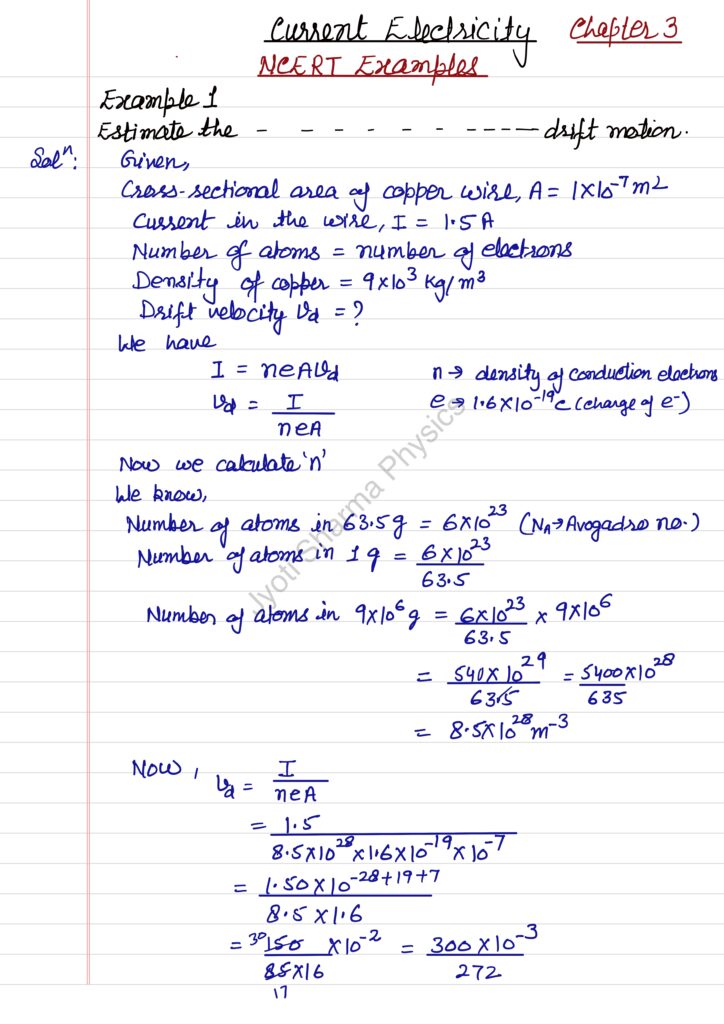 Current Electricity Chapter 3
NCERT Examples
Example 1
Estimate the - - - - - - - - - - — drift motion.
Solⁿ: Given,
Cross-sectional area of copper wire, A = 1×10⁻⁷ m2
Current in the wire, I = 1.5 A
Number of atoms = number of electrons
Density of copper = 9×10³ Kg/m³
Drift velocity vd = ?
We have
I = neAvd n → density of conduction electrons
vd = I/neA e → 1.6×10⁻¹⁹C (charge of e⁻)
Now we calculate 'n'
We know,
Number of atoms in 63.5g = 6×10²³ (NA → Avogadro no.)
Number of atoms in 1 g = 6×10²³/63.5
Number of atoms in 9×10⁶g = 6×10²³/63.5 × 9×10⁶
= 540×10²⁹/63.5 = 5400×10²⁸/635
= 8.5×10²⁸ m⁻³
Now, vd = I/neA
= 1.5/8.5×10²⁸×1.6×10⁻¹⁹×10⁻⁷
= 1.50×10⁻²⁸⁺¹⁹⁺⁷/8.5×1.6
= 30 150/85×16 ×10⁻² = 300×10⁻³/272
17
Jyoti Sharma Physics